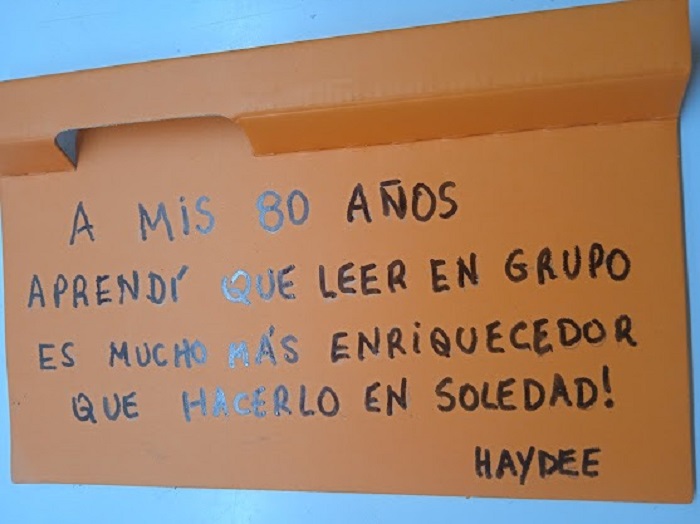 A MiS 80 AÑOS
APRENDÍ QUE LEER EN GRUPO
ES MUCHO MÁS ENRiQUECEDOR
QUE HACERLO EN SOLEDAD!
HAYDEE